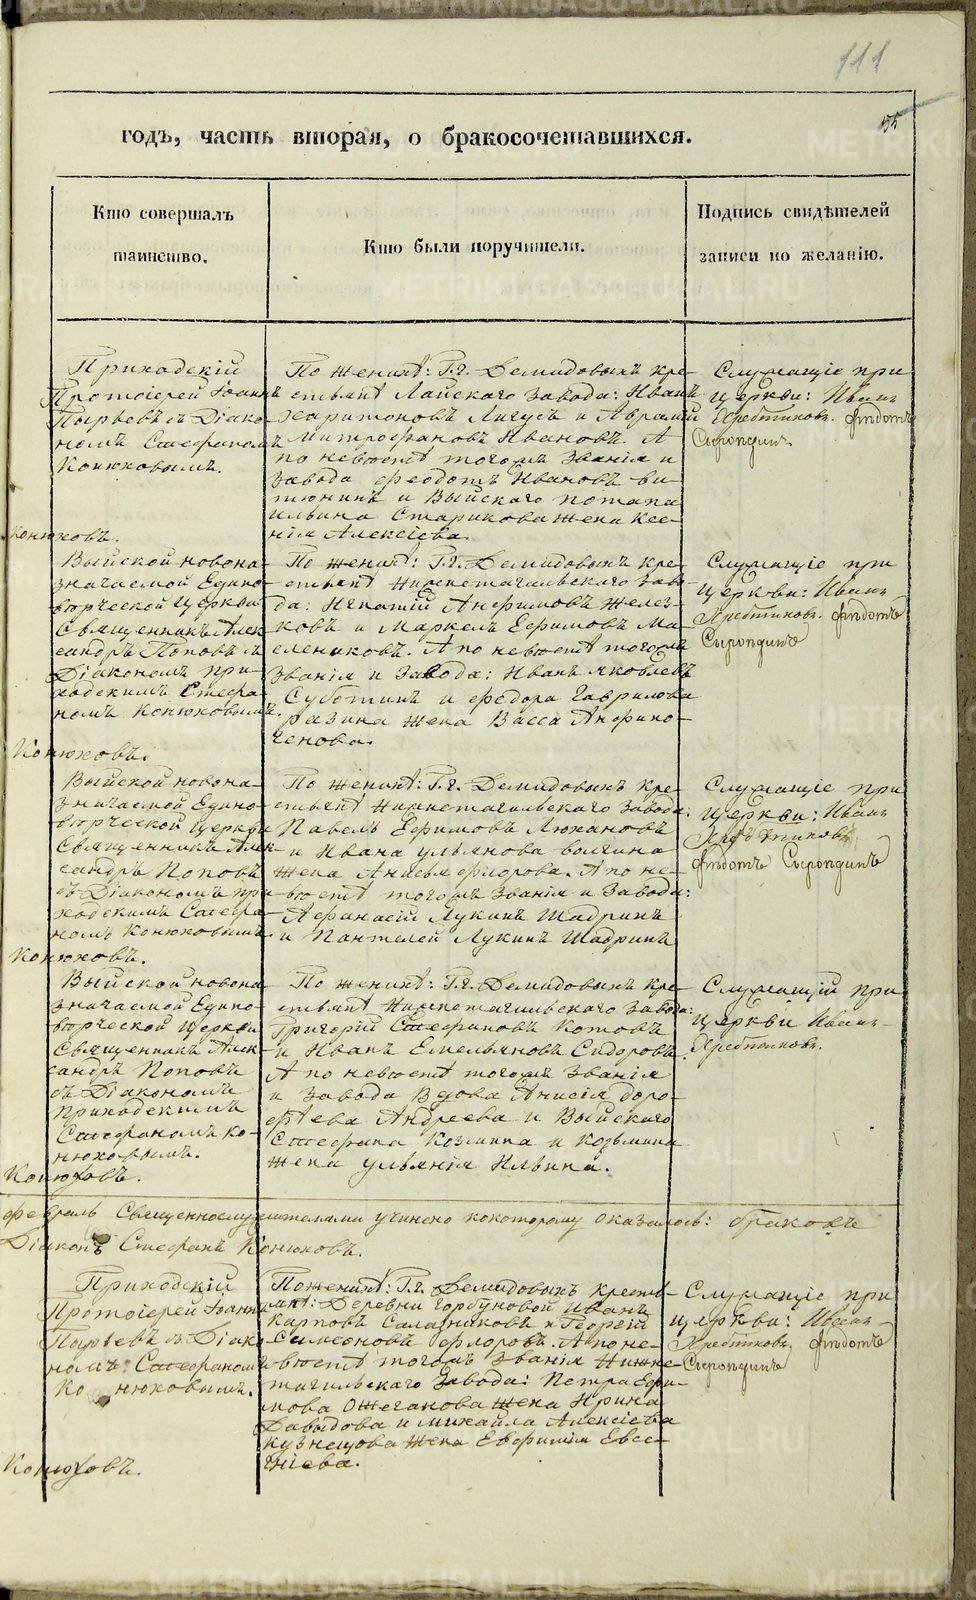 111
годъ, часть вторая, о бракосочетавшихся.
Кто совершалъ
таинство.
Кто были поручители.
Подпись свидѣтелей
записи по желанію.
Приходскій
Протоіерей Іоаннъ
Пырьевъ съ Діако-
номъ Стефаномъ
Конюховымъ.
Конюховъ.
По женихѣ: Г.г. Демидовыхъ кре-
стьянѣ Лайскаго Завода: Иванъ
Харитоновъ Лигусъ и Аврамій
Митрофановъ Ивановъ. А
по невѣстѣ тогожъ Званія и
Завода Феодотъ Ивановъ Ви-
тюнинъ и Выйскаго Потапа
Ильина Старикова жена Ксе-
нія Алексіева.
Служащіе при
церкви: Иванъ
Хребтиковъ. Ѳедотъ
Сыропдинъ
Выйской новона-
значаемой Едино-
вѣрческой Церкви
Священникъ Алек-
сандръ Поповъ съ
Діакономъ при-
ходскимъ Стефа-
номъ Конюховымъ.
Конюховъ.
По женихѣ: Г.г. Демидовыхъ кре-
стьянѣ Нижнетагильскаго Заво-
да: Игнатій Анфимовъ Желез-
ковъ и Маркелъ Ефимовъ Ма-
слениковъ. А по невѣстѣ тогожъ
Званія и Завода: Иванъ Яковлевъ
Суботинъ и Федора Гаврилова
Разина жена Васса Анфино-
генова.
Служащіе при
церкви: Иванъ
Хребтиковъ. Ѳедотъ
Сыропдинъ
Выйской новона-
значаемой Едино-
вѣрческой Церкви
Священникъ Алек-
сандръ Поповъ
съ Діакономъ при-
ходскимъ Стефа-
номъ Конюховымъ.
Конюховъ.
По женихѣ: Г.г. Демидовыхъ кре-
стьянѣ Нижнетагильскаго Завода:
Павелъ Ефимовъ Люхановъ
и Ивана Ульянова Волгина
жена Анисья Флорова. А по не-
вѣстѣ тогожъ Званія и Завода:
Афанасій Лукинъ Шадринъ
и Пантелей Лукинъ Шадринъ
Служащіе при
церкви: Иванъ
Хребтиковъ
Ѳедотъ Сыропдинъ
Выйской новона-
значаемой Едино-
вѣрческой Церкви
Священникъ Алек-
сандръ Поповъ
съ Діакономъ
приходскимъ
Стефаномъ Ко-
нюховымъ.
Конюховъ.
По женихѣ: Г.г. Демидовыхъ кре-
стьянѣ Нижнетагильскаго Завода:
Григорій Стефановъ Котовъ
и Иванъ Емельяновъ Сидоровъ.
А по невѣстѣ тогожъ Званія
и Завода Вдова Анисія Доро-
фѣева Андреева и Выйскаго
Стефана Козмина и Козьмина
жена Ульянія Ильина.
Служащій при
церкви Иванъ
Хребтиковъ.
Февраль Священнослужителями учинено по которому оказалось: браковъ
Діаконъ Стефанъ Конюховъ.
Приходскій
Протоіерей Іоаннъ
Пырьевъ съ Діако-
номъ: Стефаномъ
Конюховымъ.
Конюховъ.
По женихѣ: Г.г. Демидовыхъ кресть-
янѣ: Деревни Горбуновой Иванъ
Карповъ Саланниковъ и Георгій
Самсоновъ Флоровъ. А по не-
вѣстѣ тогожъ Званія Нижне-
тагильскаго Завода: Петра Ефи-
мова Ожеганова жена Ирина
Давыдова и Михайла Алексіева
Кузнецова жена Евфимія Евсе-
гніева.
Служащіе при
церкви: Иванъ
Хребтиковъ Ѳедотъ
Сыропдинъ